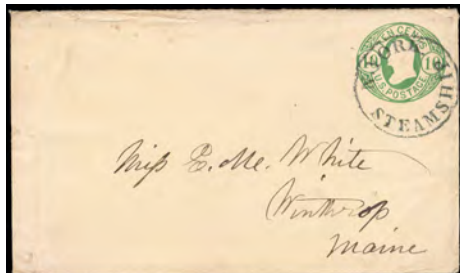 TEN CENTS
10
U.S. POSTAGE
YORK
STEAMSHIP
Miss E. White
Winthrop
Maine